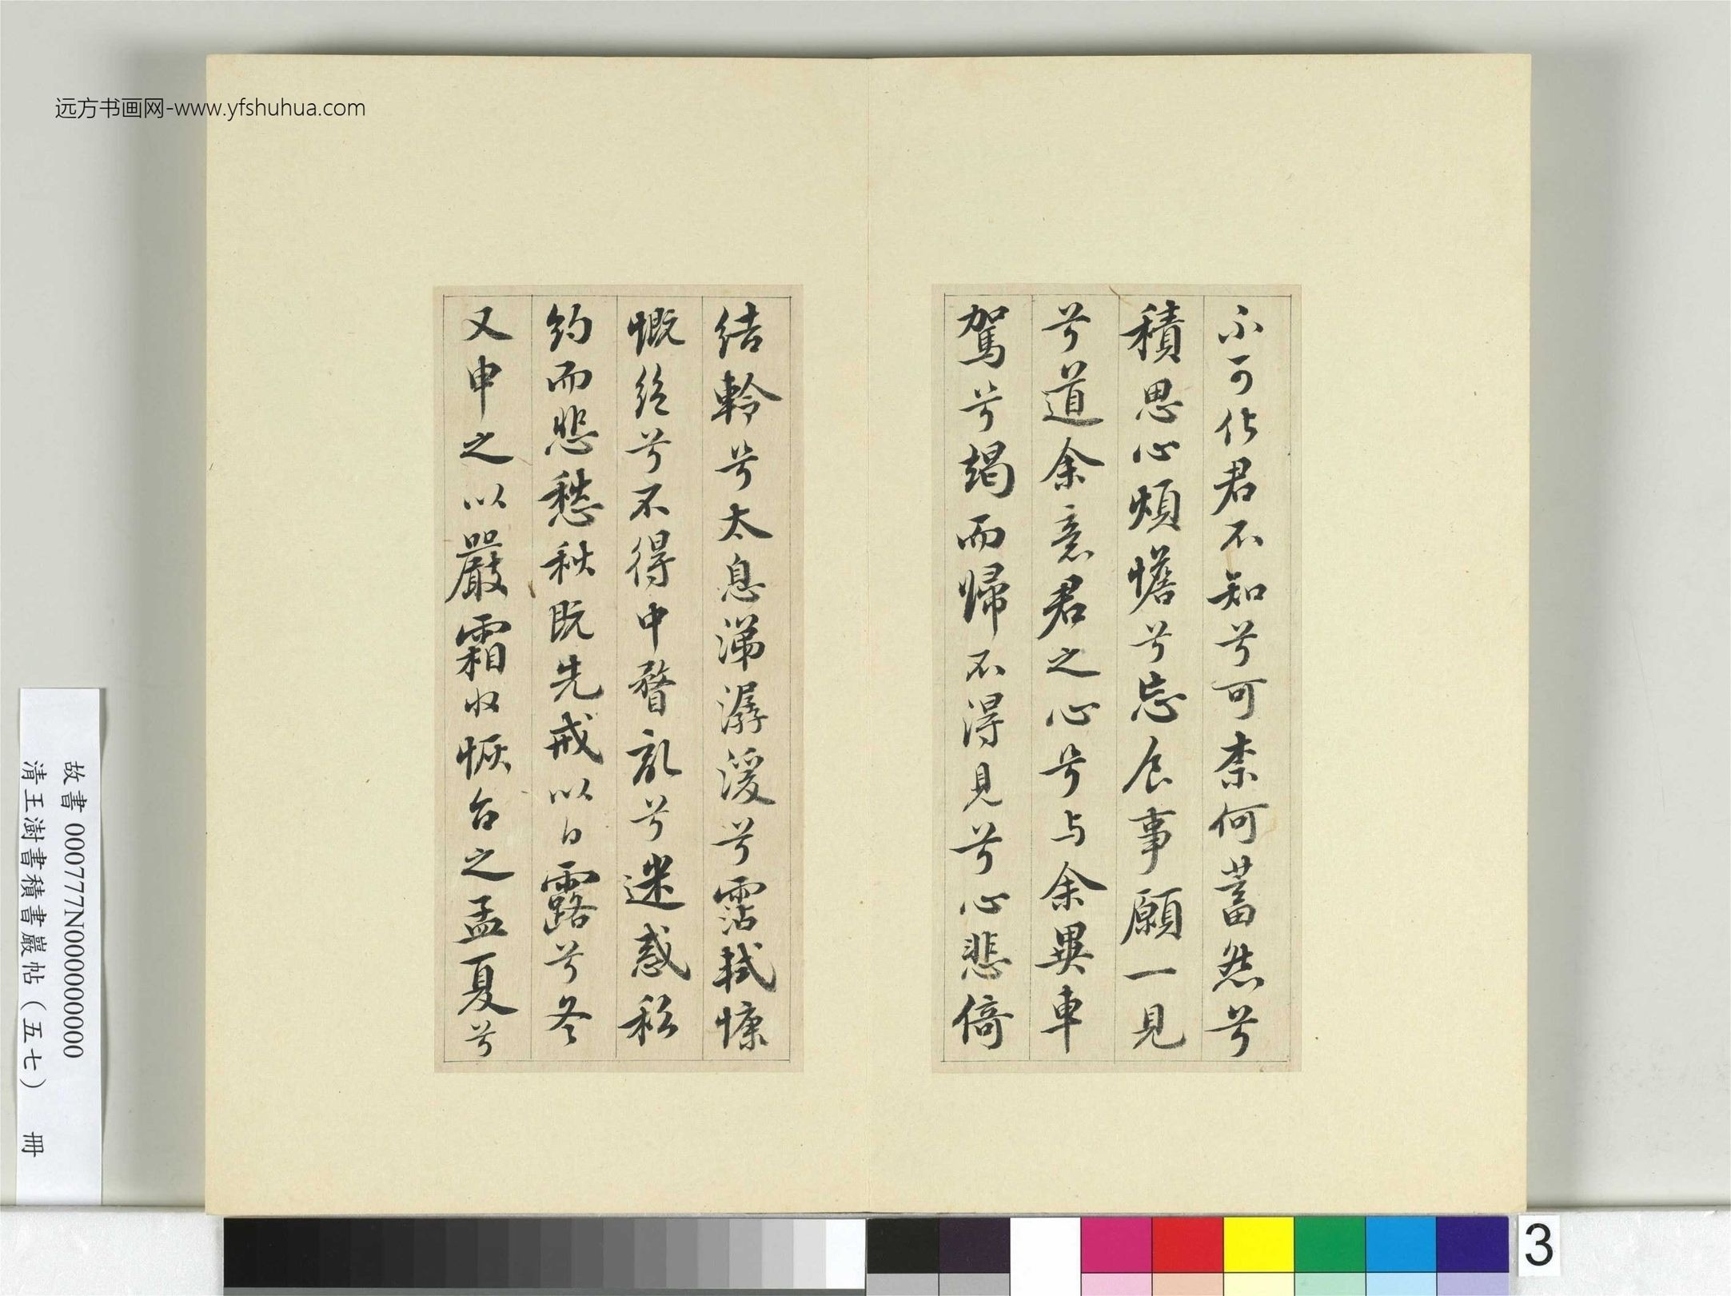 远方书画网-www.yfshuhua.com
不可化君不知兮可柰何蓄怨兮
積思心煩憺兮忘食事願一見
兮道余意君之心兮与余異車
駕兮朅而歸不得見兮心悲倚
結軨兮太息涕潺湲兮霑軾慷
慨絶兮不得中瞀亂兮迷惑私
約而悲愁秋既先戒以白露兮冬
又申之以嚴霜收恢台之孟夏兮
故書 000777N000000000
清王澍書積書巖帖(五七) 冊
3